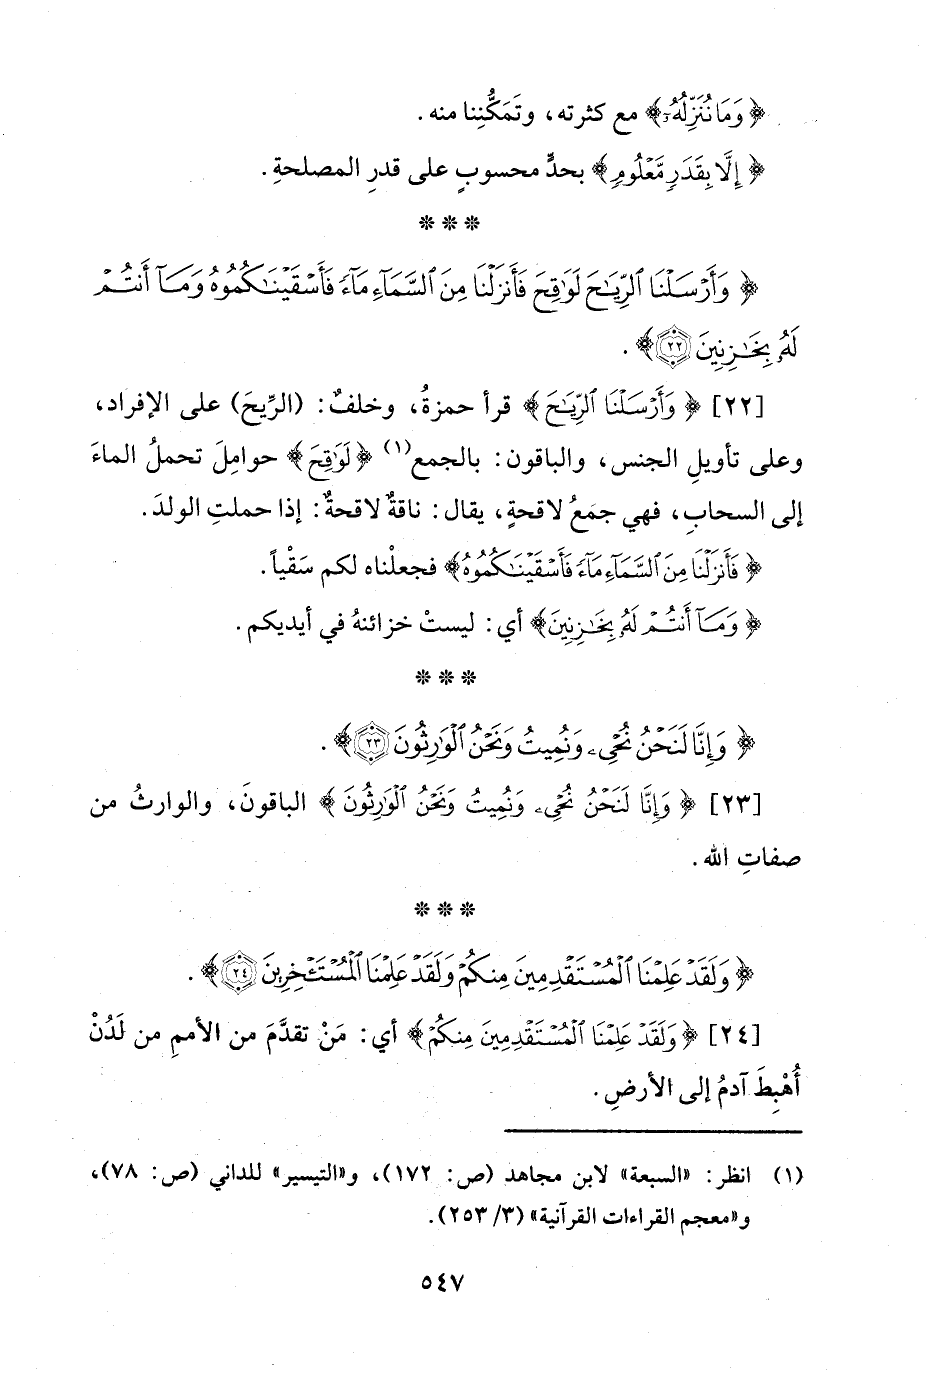 ﴿ وَمَا نُنَزِّلُهُۥٓ ﴾ مع كثرته، وتَمَكُّنِنا منه.
﴿ إِلَّا بِقَدَرٍ مَّعْلُومٍ ﴾ بحدٍّ محسوبٍ على قدرِ المصلحةِ.
* * *
﴿ وَأَرْسَلْنَا ٱلرِّيَٰحَ لَوَٰقِحَ فَأَنزَلْنَا مِنَ ٱلسَّمَآءِ مَآءً فَأَسْقَيْنَٰكُمُوهُ وَمَآ أَنتُمْ
لَهُۥ بِخَٰزِنِينَ ٢٢ ﴾.
[٢٢] ﴿ وَأَرْسَلْنَا ٱلرِّيَٰحَ ﴾ قرأ حمزةُ، وخلفٌ: (الرِّيحَ) على الإفراد،
وعلى تأويلِ الجنس، والباقون: بالجمع(١) ﴿ لَوَٰقِحَ ﴾ حوامِلَ تحملُ الماءَ
إلى السحابِ، فهي جمعُ لاقحةٍ، يقال: ناقةٌ لاقحةٌ: إذا حملتِ الولدَ.
﴿ فَأَنزَلْنَا مِنَ ٱلسَّمَآءِ مَآءً فَأَسْقَيْنَٰكُمُوهُ ﴾ فجعلْناه لكم سَقْياً.
﴿ وَمَآ أَنتُمْ لَهُۥ بِخَٰزِنِينَ ﴾ أي: ليستْ خزائنهُ في أيديكم.
* * *
﴿ وَإِنَّا لَنَحْنُ نُحْىِۦ وَنُمِيتُ وَنَحْنُ ٱلْوَٰرِثُونَ ٢٣ ﴾.
[٢٣] ﴿ وَإِنَّا لَنَحْنُ نُحْىِۦ وَنُمِيتُ وَنَحْنُ ٱلْوَٰرِثُونَ ﴾ الباقونَ، والوارثُ من
صفاتِ الله.
* * *
﴿ وَلَقَدْ عَلِمْنَا ٱلْمُسْتَقْدِمِينَ مِنكُمْ وَلَقَدْ عَلِمْنَا ٱلْمُسْتَـْٔخِرِينَ ٢٤ ﴾.
[٢٤] ﴿ وَلَقَدْ عَلِمْنَا ٱلْمُسْتَقْدِمِينَ مِنكُمْ ﴾ أي: مَنْ تقدَّمَ من الأممِ من لَدُنْ
أُهْبِطَ آدمُ إلى الأرضِ.
(١) انظر: «السبعة» لابن مجاهد (ص: ١٧٢)، و«التيسير» للداني (ص: ٧٨)،
و«معجم القراءات القرآنية» (٣/ ٢٥٣).
٥٤٧